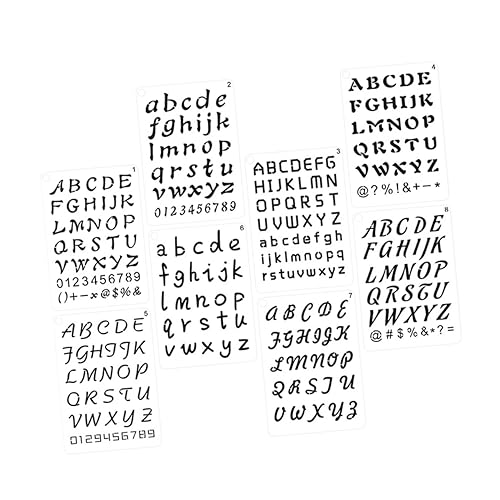 1
ABCDE
FGHIJK
LMNOP
QRSTU
VWXYZ
0123456789
()+-x@$%&
2
abcde
fghijk
lmnop
qrstu
vwxyz
0123456789
3
ABCDEFG
HIJKLMN
OPQRST
UVWXYZ
abcdefgh
ijklmnopq
rstuvwxyz
4
ABCDE
FGHIJK
LMNOP
QRSTU
VWXYZ
@?%!&+-*
5
ABCDE
FGHIJK
LMNOP
QRSTU
VWXYZ
0123456789
6
abcde
fghijk
lmnop
qrstu
vwxyz
7
ABCDE
FGHIJK
LMNOP
QRSTU
VWXYZ
8
ABCDE
FGHIJK
LMNOP
QRSTU
VWXYZ
@#$%&*?=